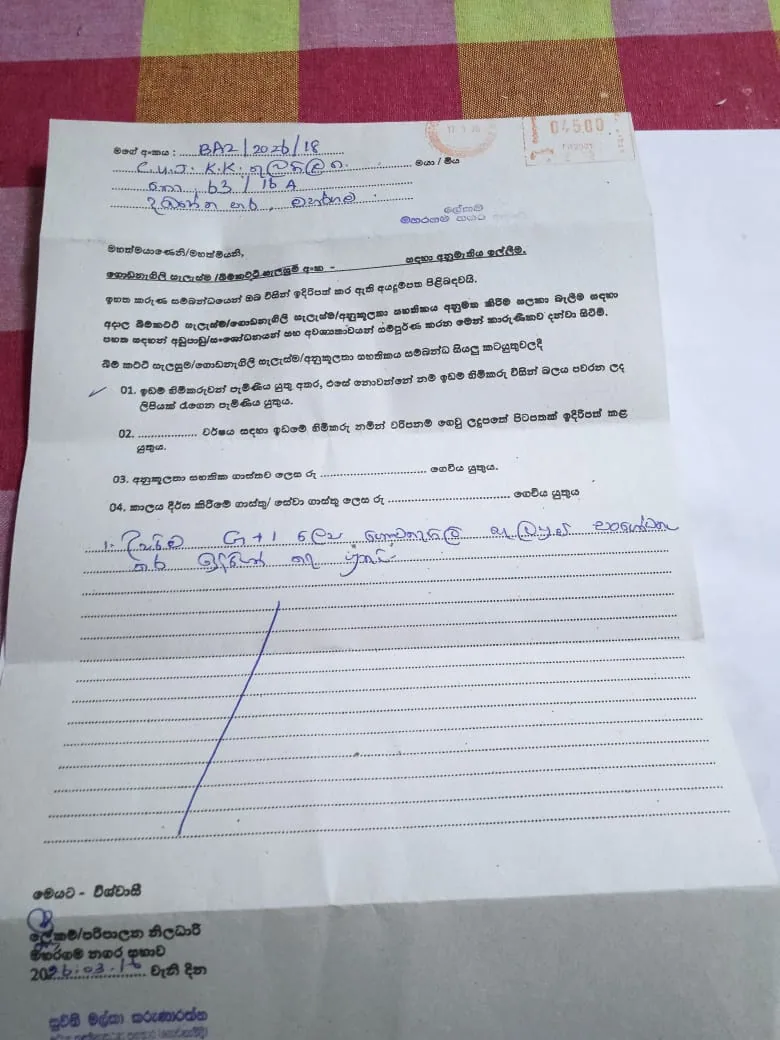 මගේ අංකය : BA2/2026/18
04500
C.U.J. K.K. මයා / මිය
නො. 63/1B A
ලේකම්
මහරගම නගර
මහත්මයාණෙනි/මහත්මියනි,
ගොඩනැගිලි සැලැස්ම /බිම්කට්ටි සැලසුම් අංක - සඳහා අනුමැතිය ඉල්ලීම.
ඉහත කරුණ සම්බන්ධයෙන් ඔබ විසින් ඉදිරිපත් කර ඇති අයදුම්පත පිළිබඳවයි.
අදාල බිම්කට්ටි සැලැස්ම/ගොඩනැගිලි සැලැස්ම/අනුකූලතා සහතිකය අනුමත කිරීම සලකා බැලීම සඳහා
පහත සඳහන් අඩුපාඩු/සංශෝධනයන් සහ අවශ්‍යතාවයන් සම්පූර්ණ කරන මෙන් කාරුණිකව දන්වා සිටිමි.
බිම් කට්ටි සැලසුම/ගොඩනැගිලි සැලැස්ම/අනුකූලතා සහතිකය සම්බන්ධ සියලු කටයුතුවලදී
01. ඉඩම් හිමිකරුවන් පැමිණිය යුතු අතර, එසේ නොවන්නේ නම් ඉඩම් හිමිකරු විසින් බලය පවරන ලද
ලිපියක් රැගෙන පැමිණිය යුතුය.
02. .................. වර්ෂය සඳහා ඉඩමේ හිමිකරු නමින් වරිපනම් ගෙවූ ලදුපතේ පිටපතක් ඉදිරිපත් කළ
යුතුය.
03. අනුකූලතා සහතික ගාස්තුව ලෙස රු .............................. ගෙවිය යුතුය.
04. කාලය දීර්ඝ කිරීමේ ගාස්තු/ සේවා ගාස්තු ලෙස රු .................................. ගෙවිය යුතුය
1. G+1 ලෙස ගොඩනැගිලි සැලැස්ම සංශෝධනය
කර ඉදිරිපත් කළ යුතුයි.
මෙයට - විශ්වාසී
ලේකම්/පරිපාලන නිලධාරී
මහරගම නගර සභාව
2026.03. වැනි දින
සුවනි මල්කා කරුණාරත්න